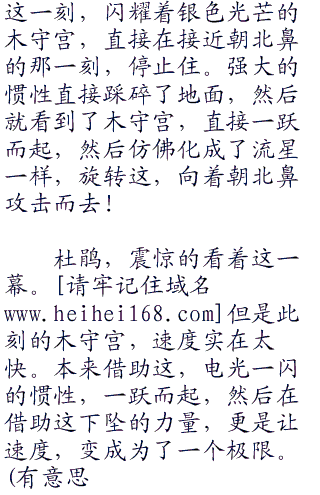 这一刻，闪耀着银色光芒的
木守宫，直接在接近朝北鼻
的那一刻，停止住。强大的
惯性直接踩碎了地面，然后
就看到了木守宫，直接一跃
而起，然后仿佛化成了流星
一样，旋转这，向着朝北鼻
攻击而去！
杜鹃，震惊的看着这一
幕。[请牢记住域名
www.heihei168.com]但是此
刻的木守宫，速度实在太
快。本来借助这，电光一闪
的惯性，一跃而起，然后在
借助这下坠的力量，更是让
速度，变成为了一个极限。
(有意思